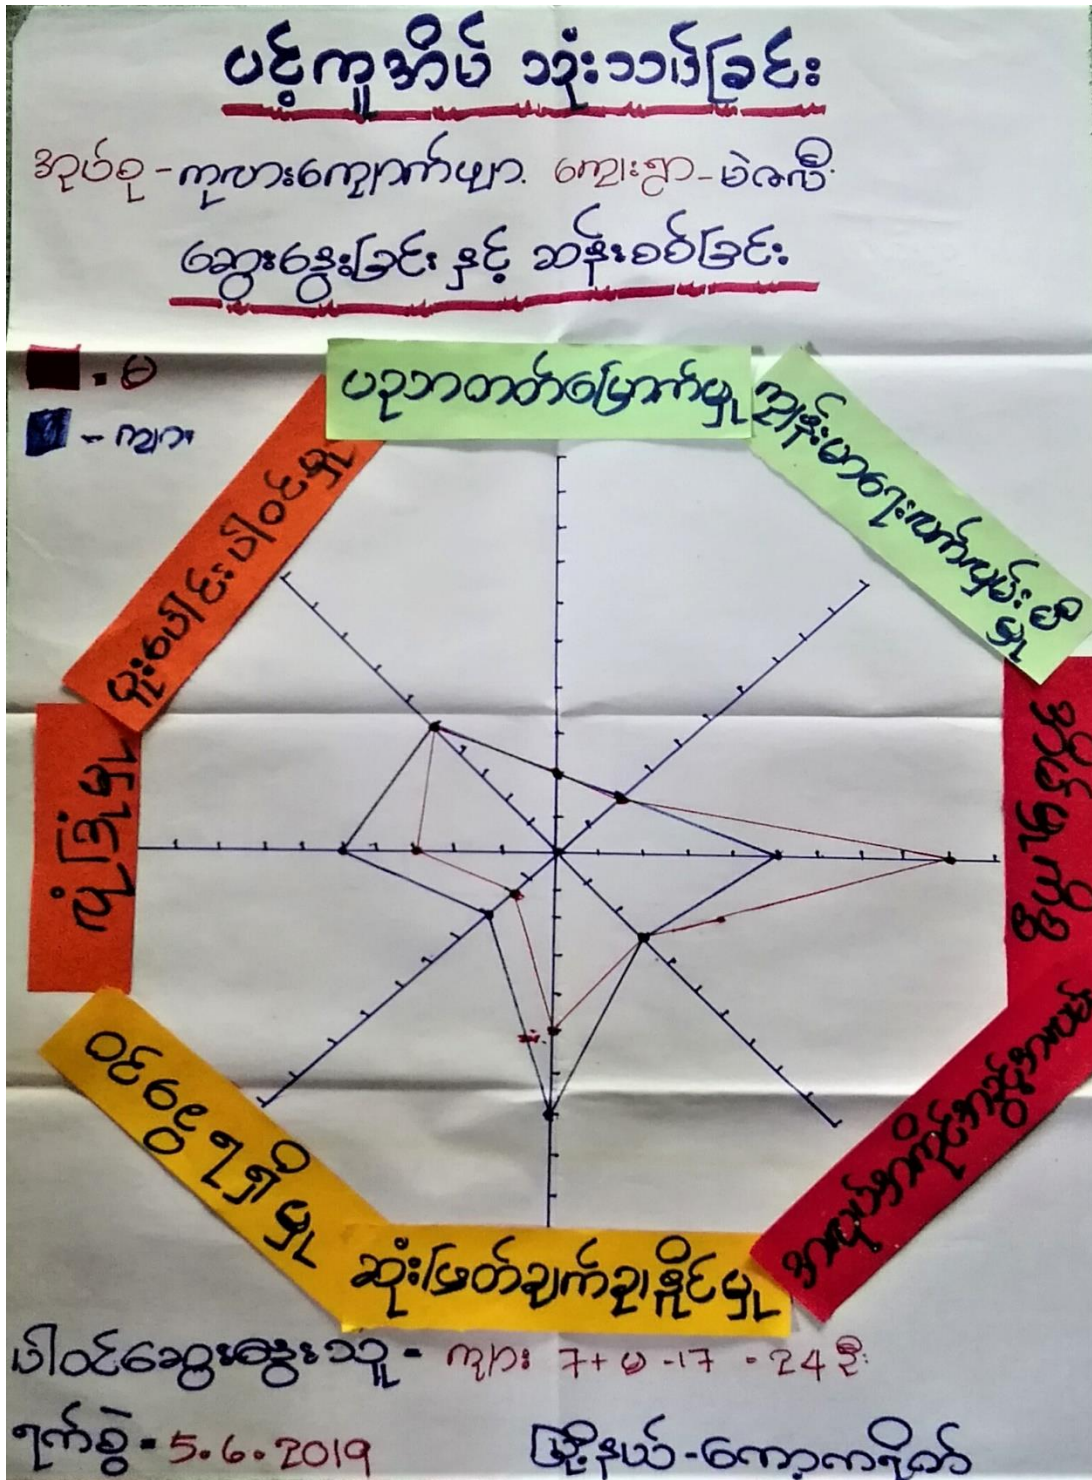 ပင့်ကူအိမ် သုံးသပ်ခြင်း
အုပ်စု - ကုလားကျောက်ဖျာ. ကျေးရွာ - မဲဇလီ
ဆွေးနွေးခြင်း နှင့် ဆန်းစစ်ခြင်း
- မ
- ကျား
ပညာတတ်မြောက်မှု
ကျန်းမာရေးလက်လှမ်းမီမှု
အလုပ်အကိုင်အခွင့်အလမ်း
ဆုံးဖြတ်ချက်ချနိုင်မှု
ဝင်ငွေရရှိမှု
လုံခြုံမှု
ပူးပေါင်းပါဝင်မှု
ပါဝင်ဆွေးနွေးသူ - ကျား 7 + မ - 17 - 24 ဦး
ရက်စွဲ - 5.6.2019 မြို့နယ် - ကော့ကရိတ်